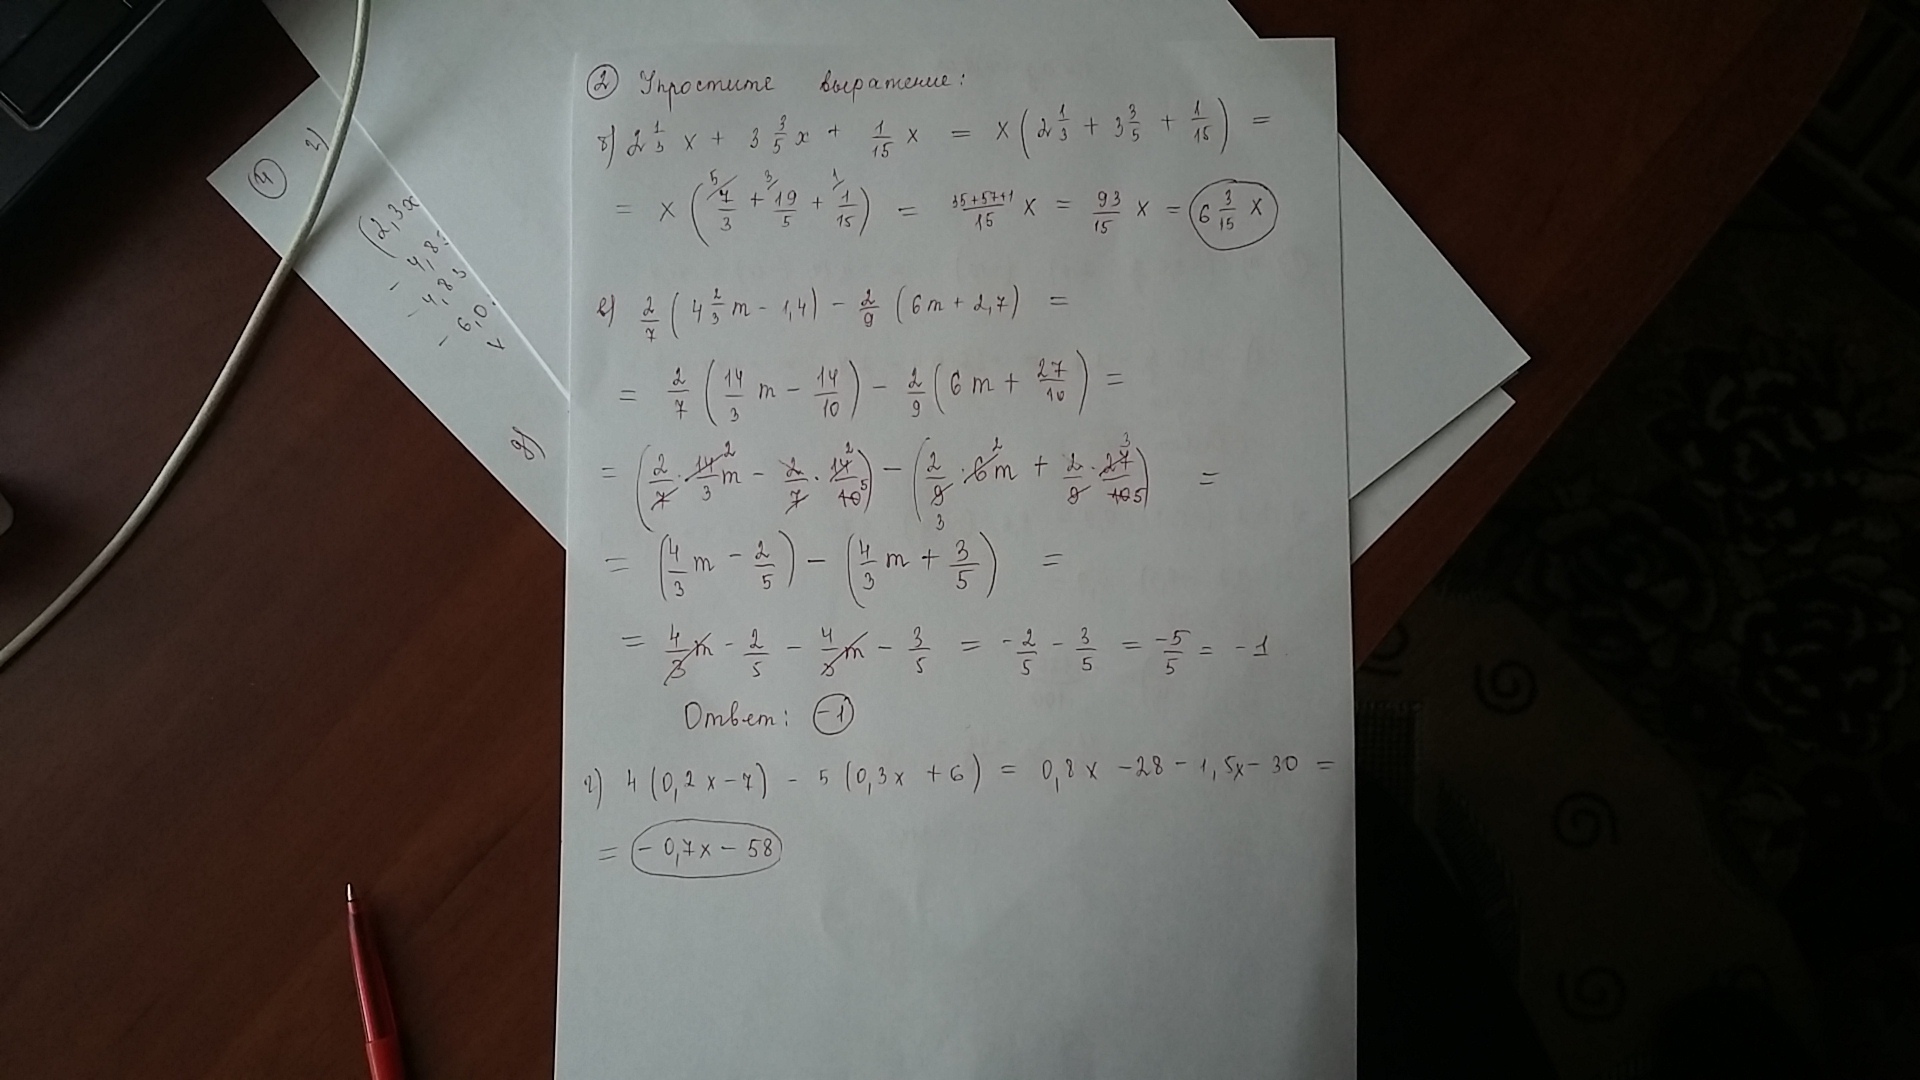 ② Упростите выражение:
б) 2 1/3 x + 3 3/5 x + 1/15 x = x (2 1/3 + 3 3/5 + 1/15) =
= x (5/ 7/3 + 3/ 19/5 + 1/ 1/15) = 35+57+1/15 x = 93/15 x = 6 3/15 x
в) 2/7 (4 2/3 m - 1,4) - 2/9 (6m + 2,7) =
= 2/7 (14/3 m - 14/10) - 2/9 (6m + 27/10) =
= (2/7 · 14/3 2 m - 2/7 · 14/10 2 5) - (2/9 3 · 6 2 m + 2/9 · 27/10 3 5) =
= (4/3 m - 2/5) - (4/3 m + 3/5) =
= 4/3 m - 2/5 - 4/3 m - 3/5 = -2/5 - 3/5 = -5/5 = -1
Ответ: -1
г) 4 (0,2x - 7) - 5 (0,3x + 6) = 0,8x - 28 - 1,5x - 30 =
= - 0,7x - 58
④ г)
(2,3x
- 4,8
- 4,83
- 6,0
д)